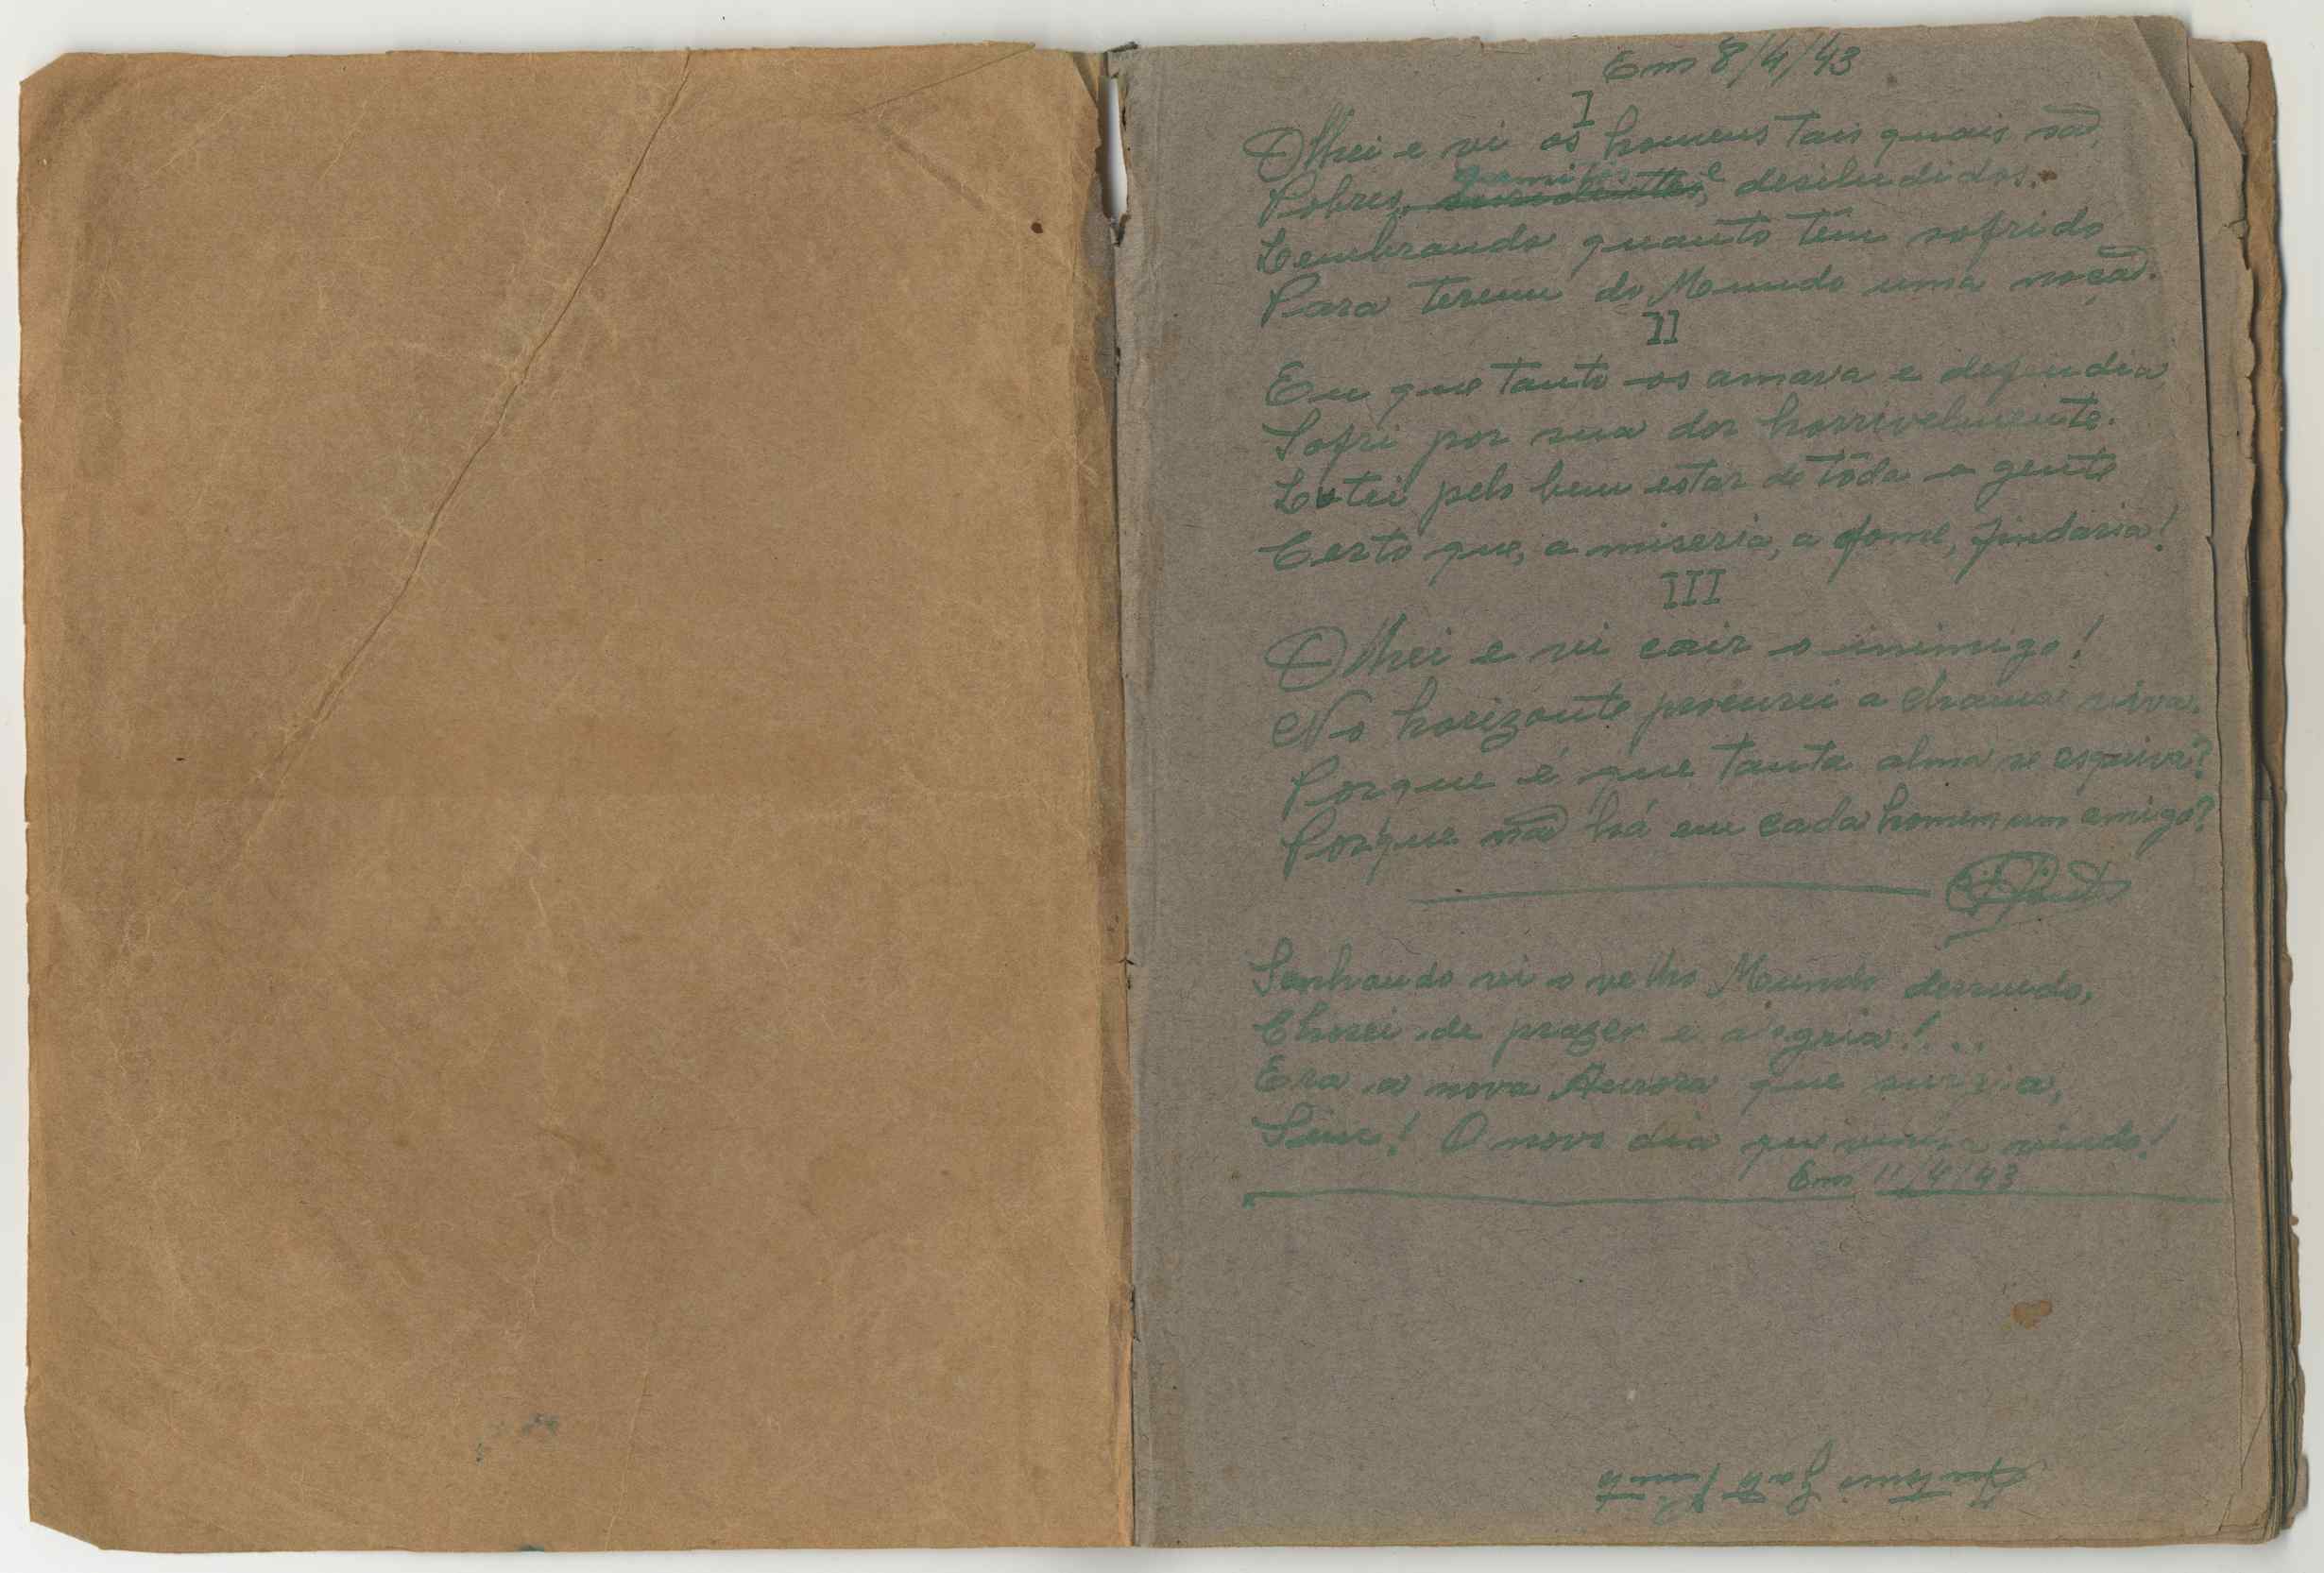 Em 8/4/43
I
Olhei e vi os homens tais quais são,
Pobres, e desiludidos.
Lembrando quanto têm sofrido
Para terem do Mundo uma noção.
II
Eu que tanto os amava e defendia
Sofri por sua dor horrivelmente.
Lutei pelo bem estar de tôda a gente
Certo que, a miseria, a fome, findaria!
III
Olhei e vi cair o inimigo!
No horizonte procurei a chama viva.
Porque é que tanta alma se esquiva?
Porque não há em cada homem um amigo?
Sonhando vi o velho Mundo derruido,
Chorei de prazer e alegria!...
Era a nova Aurora que surgia,
Sim! O novo dia que vinha vindo!
Em 11/4/43
Antonio Gato Pinto